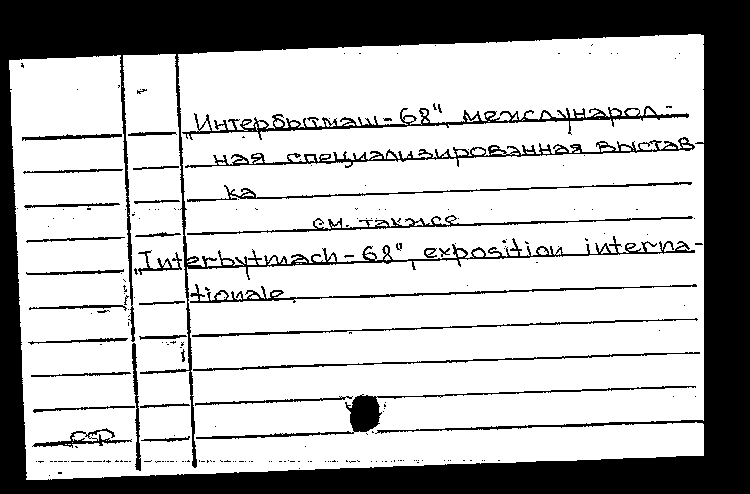 „Интербытмаш-68", международ-
ная специализированная выстав-
ка
см. также
„Interbytmach-68", exposition interna-
tionale.